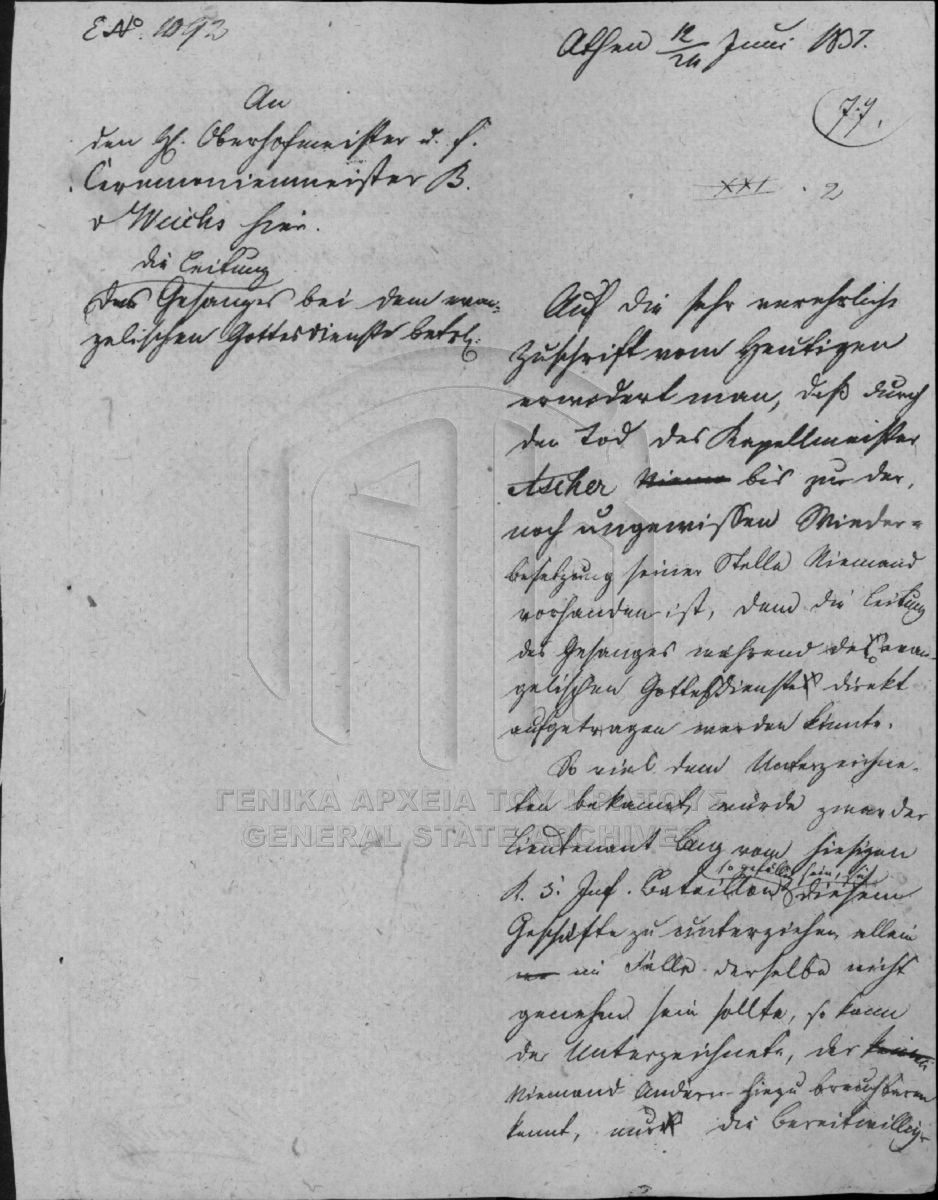 E No. 1092
Athen 12/24 Juni 1837.
77.
An
den H. Oberhofmeister u. s.
Ceremonienmeister B.
v Weichs hier.
XXI . 2
die Leitung
des Gesanges bei dem evan-
gelischen Gottesdienste betr.
Auf die sehr verehrliche
Zuschrift vom Heutigen
erwiedert man, daß durch
den Tod des Kapellmeister
Ascher bis zur der,
noch ungewissen Wieder=
besetzung seiner Stelle Niemand
vorhanden ist, dem die Leitung
des Gesanges während des evan-
gelischen Gottesdienstes direkt
aufgetragen werden könnte.
So viel dem Unterzeichne-
ten bekannt, würde zwar der
Lieutenant Lang vom hiesigen
so gefällig sein, sich
K. 3. Inf. Bataillon diesem
Geschäfte zu unterziehen, allein
im Falle derselbe nicht
genehm sein sollte, so kann
der Unterzeichnete, der
Niemand Andern hiezu brauchbaren
kennt, nur die Bereitwillig-
ΓΕΝΙΚΑ ΑΡΧΕΙΑ ΤΟΥ ΚΡΑΤΟΥΣ
GENERAL STATE ARCHIVES